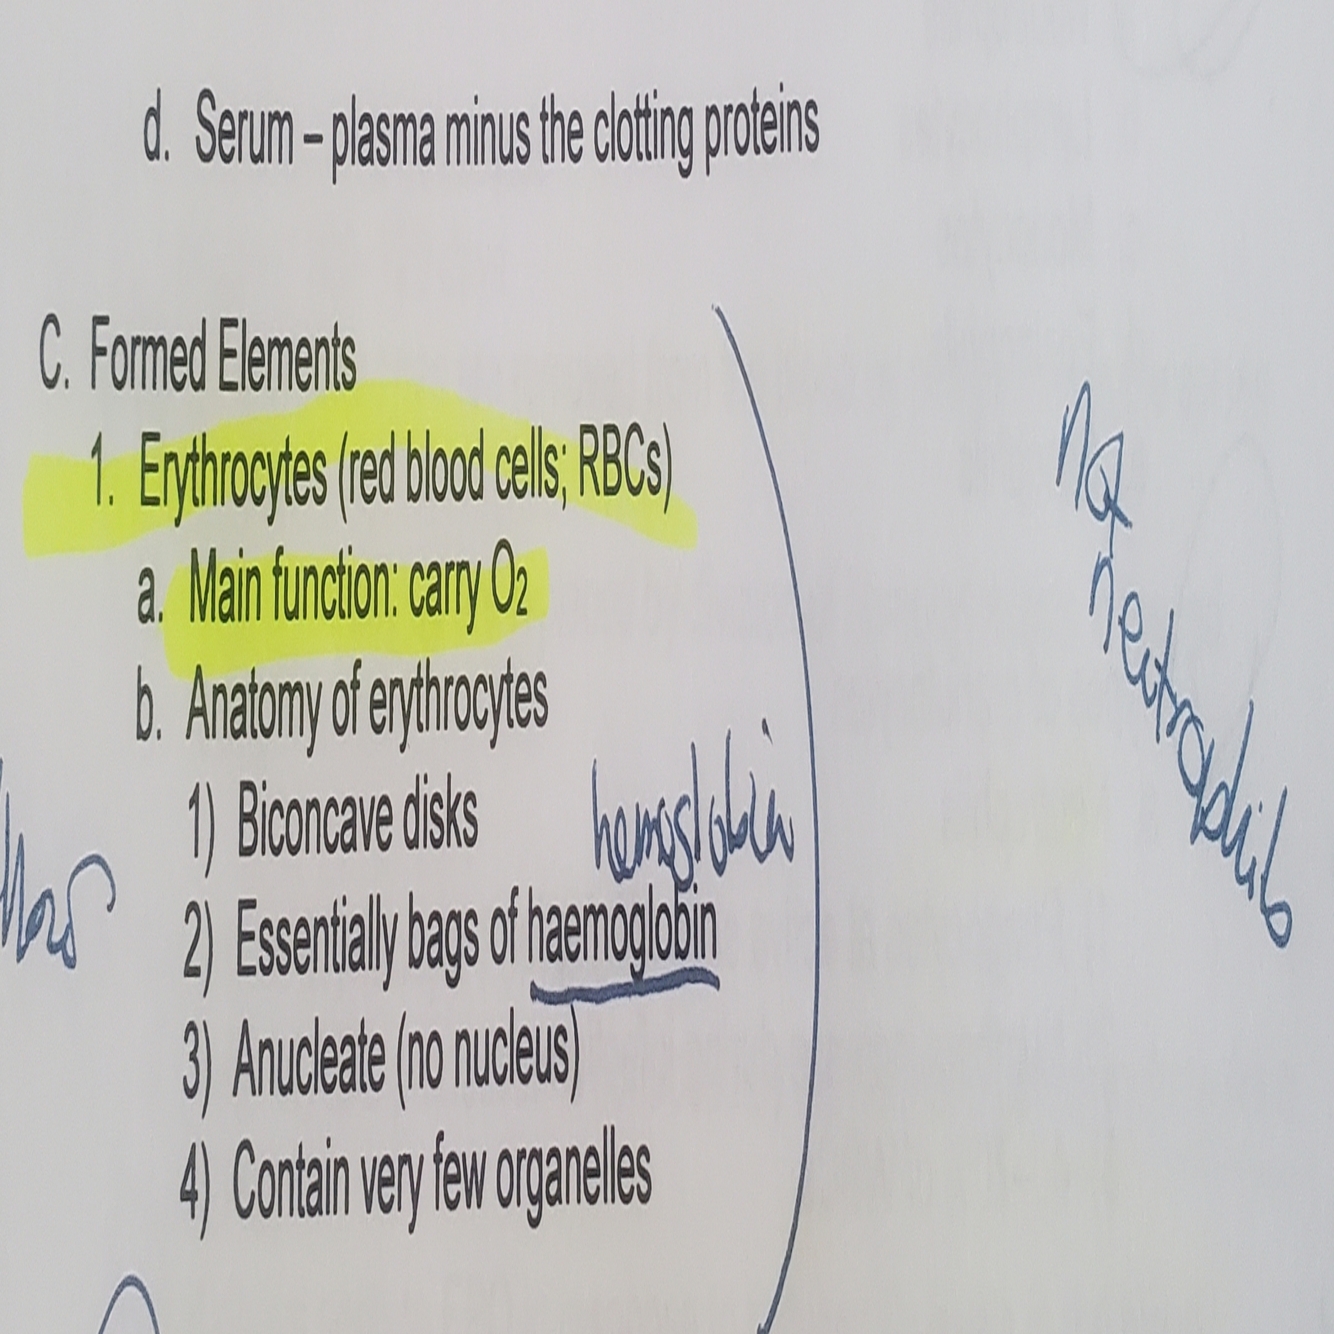 d. Serum – plasma minus the clotting proteins
C. Formed Elements
1. Erythrocytes (red blood cells; RBCs)
a. Main function: carry O₂
b. Anatomy of erythrocytes
1) Biconcave disks
hemoglobin
2) Essentially bags of haemoglobin
3) Anucleate (no nucleus)
4) Contain very few organelles